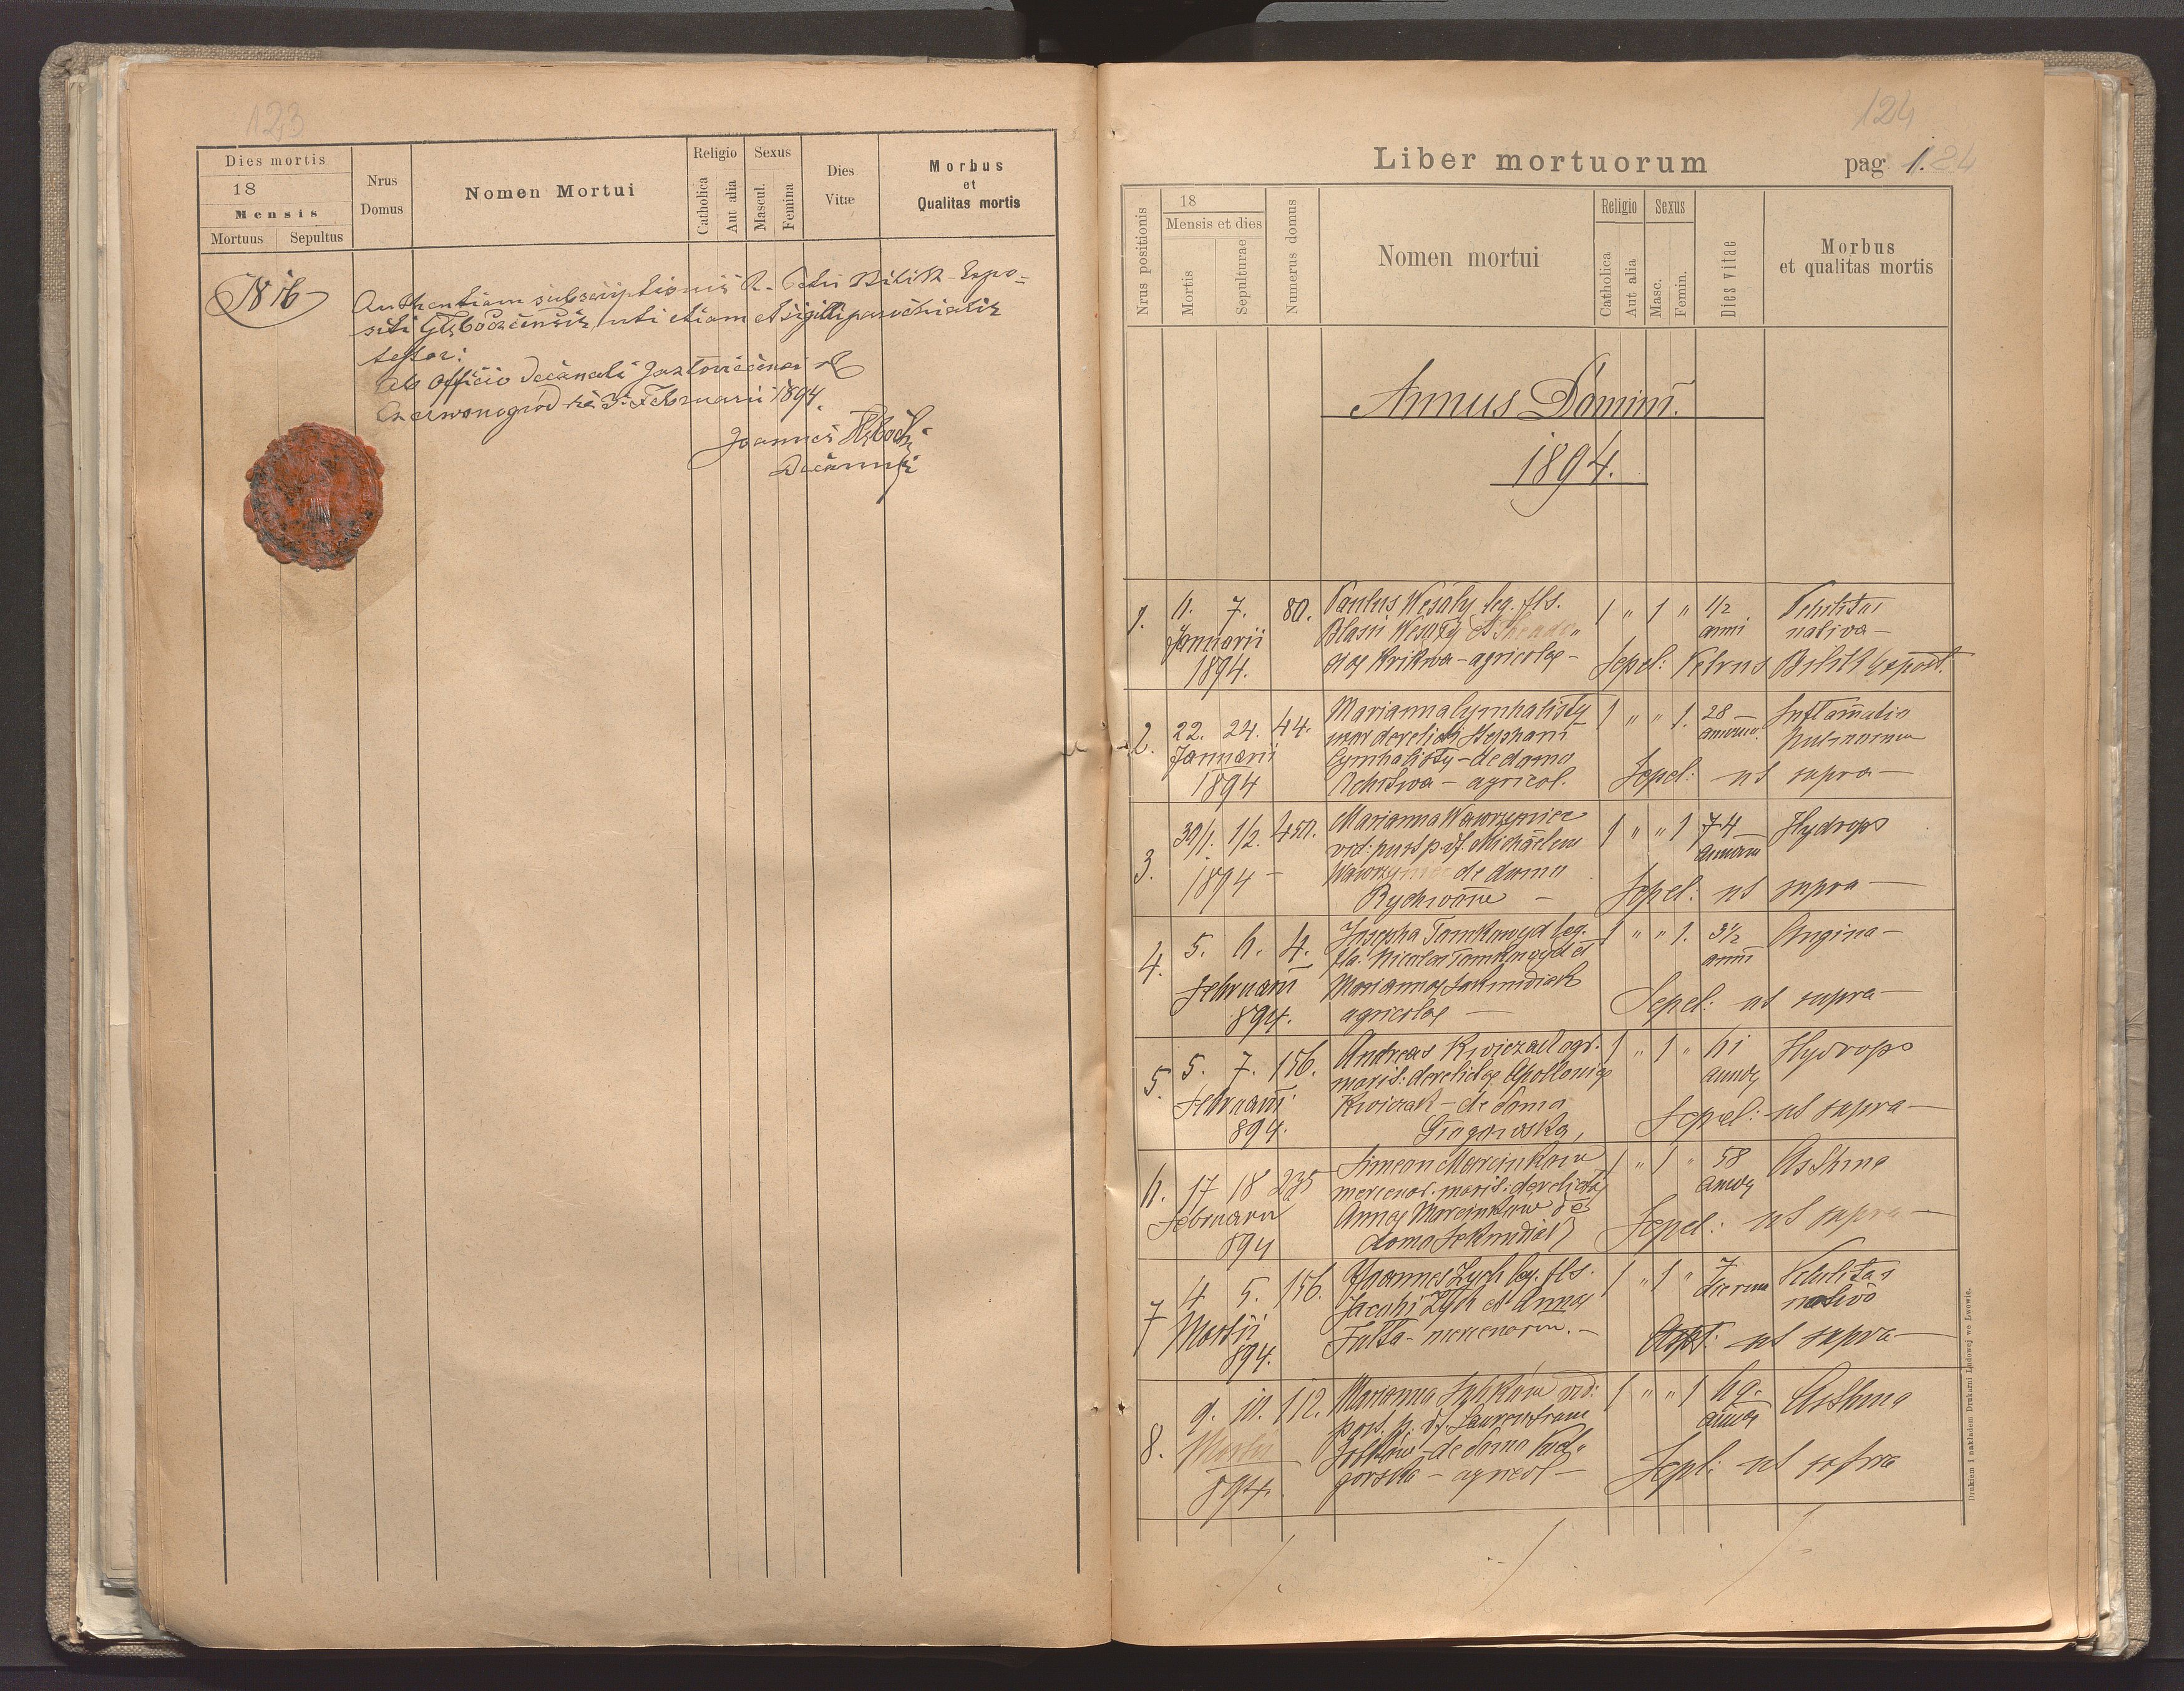 123
Dies mortis
18
Mensis
Mortuus Sepultus
Nrus
Domus
Nomen Mortui
Religio
Catholica
Aut alia
Sexus
Mascul.
Femina
Dies
Vitæ
Morbus
et
Qualitas mortis
N 16
Authentiam subscriptionis R. Petri Bilik Expo-
siti Głęboczensis, uti etiam et sigilli parochialis
testor:
Ab Officio Decanali Jazłoviecensi
Czerwonogród die 3. Februarii 1894.
Joannes
Decanus
124
Liber mortuorum
pag. 1. 24
Nrus positionis
18
Mensis et dies
Mortis
Sepulturae
Numerus domus
Nomen mortui
Religio
Catholica
Aut alia
Sexus
Masc.
Femin.
Dies vitae
Morbus
et qualitas mortis
Annus Domini
1894.
1. 6. 7. 80. Paulus Wesoły leg. fls. 1 " 1 " 1/2 Debilitas
Januarii Blasii Wesoły et anni nativa -
1894. Krikwa - agricolae - Sepel: Petrus Bilik Expost.
2. 22. 24. 44. Marianna Cymbalisty 1 " " 1. 28 Inflamatio
Januarii uxor derelicti Stephani annorum pulmonum
Cymbalisty - de domo
1894 - agricol. Sepel: ut supra -
3. 30/1. 1/2. 250. Marianna Wawrzyniec 1 " " 1 74 Hydrops
vid: post p. df. Michaelem annorum
1894 - Wawrzyniec de domo
Sepel: ut supra -
4. 5. 6. 4. Josepha leg. 1 " " 1. 3 1/2 Angina -
fla. Nicolai et anni
Februarii Mariannae
894. agricolae - Sepel: ut supra -
5. 5. 7. 156. Andreas agr. 1 " 1 " 61 Hydrops
marit: derelictae Apolloniae annor
Februarii - de domo
894. Sepel: ut supra -
6. 17 18 235 Simeon Marcinkow 1 " 1 " 58 Asthma
mercenar. marit. derelictae annor
Februarii Annae Marcinkow de
894 domo Sepel: ut supra -
7 4 5. 156. Joannes Zych leg. fls. 1 " 1 " 7 Debilitas
Martii Jacobi Zych et Annae dierum nativa
894. - mercenarior. - Sepel: ut supra -
8. 9. 10. 112. Marianna vid: 1 " " 1 69. Asthma
post. p. df. Laurentium annor
Martii - de domo Pod-
894. górska - agricol - Sepl: ut supra
Drukiem i nakładem Drukarni Ludowej we Lwowie.